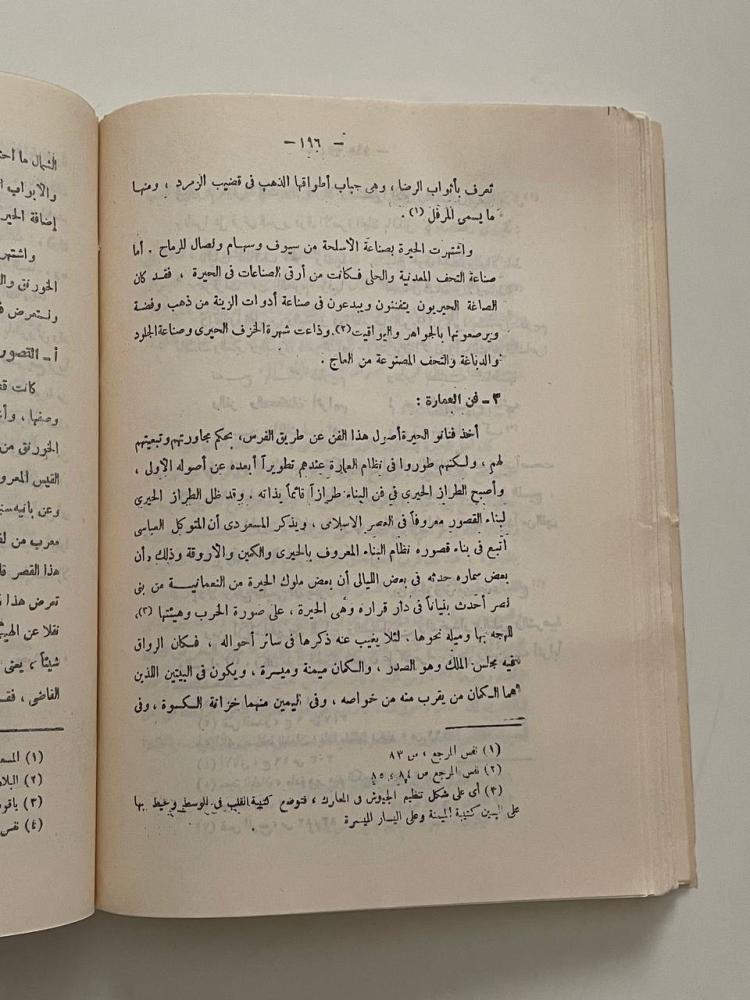 — ١٩٦ —
تعرف بأثواب الرضا ، وهى جباب أطواقها الذهب فى قضيب الزمرد ، ومنها
ما يسمى المرفل (١) .
واشتهرت الحيرة بصناعة الأسلحة من سيوف وسهام ونصال للرماح . أما
صناعة التحف المعدنية والحلى فكانت من أرقى الصناعات فى الحيرة ، فقد كان
الصاغة الحيريون يتفننون ويبدعون فى صناعة أدوات الزينة من ذهب وفضة
ويرصعونها بالجواهر واليواقيت(٢).وذاعت شهرة الخزف الحيرى وصناعة الجلود
والدباغة والتحف المصنوعة من العاج .
٣ – فن العمارة :
أخذ فنانو الحيرة أصول هذا الفن عن طريق الفرس، بحكم مجاورتهم وتبعيتهم
لهم ، ولكنهم طوروا فى نظام العمارة عندهم تطويراً أبعده عن أصوله الأولى ،
وأصبح الطراز الحيرى فى فن البناء طرازاً قائماً بذاته . وقد ظل الطراز الحيرى
لبناء القصور معروفاً فى العصر الإسلامى ، ويذكر المسعودى أن المتوكل العباسى
اتبع فى بناء قصوره نظام البناء المعروف بالحيرى والكمين والأروقة وذلك ، أن
بعض سماره حدثه فى بعض الليالى أن بعض ملوك الحيرة من النعمانيـة من بنى
نصر أحدث بنياناً فى دار قراره وهى الحيرة ، على صورة الحرب وهيئتها (٣)،
للهجه بها وميله نحوها . لئلا يغيب عنه ذكرها فى سائر أحواله ، فـكان الرواق
فيه مجلس الملك وهو الصدر ، والكمان ميمنة وميسرة ، ويكون فى البيتين اللذين
هما الكمان من يقرب منه من خواصه ، وفى اليمين منهما خزانة الكسوة ، وفى
(١) نفس المرجع ، ص ٨٣
(٢) نفس المرجع ص ٨٤ ، ٨٥
(٣) أى على شكل تنظيم الجيوش فى المعارك ، فتوضع كتيبة القلب فى الوسط ويحيط بها
على اليمين كتيبة الميمنة وعلى اليسار الميسرة
الشمال ما
والأبواب
إضافة
واشتهر
الخورنق
ونستعرض
أ – القصور
كانت
وصفها ،
الخورنق من
القيس
وعن بانيه
معرب من
هذا القصر
تعرض هذا
نقلا عن
شيئاً ، يعنى
القاضى ،
(١)
(٢)
(٣)
(٤) نفس